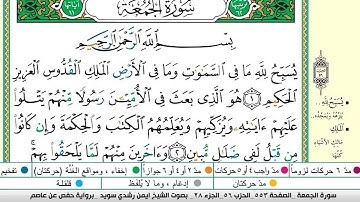 سُورَةُ الجُمُعَةِ
بِسْمِ اللَّهِ الرَّحْمَٰنِ الرَّحِيمِ
يُسَبِّحُ لِلَّهِ مَا فِي السَّمَٰوَٰتِ وَمَا فِي الْأَرْضِ الْمَلِكِ الْقُدُّوسِ الْعَزِيزِ
الْحَكِيمِ ١ هُوَ الَّذِي بَعَثَ فِي الْأُمِّيِّـۧنَ رَسُولًا مِّنْهُمْ يَتْلُوا۟
عَلَيْهِمْ ءَايَٰتِهِۦ وَيُزَكِّيهِمْ وَيُعَلِّمُهُمُ الْكِتَٰبَ وَالْحِكْمَةَ وَإِن كَانُوا۟
مِن قَبْلُ لَفِي ضَلَٰلٍ مُّبِينٍ ٢ وَءَاخَرِينَ مِنْهُمْ لَمَّا يَلْحَقُوا۟ بِهِمْ
مدّ ٦ حركات لزوماً مدّ واجب ٤ أو ٥ حركات مدّ ٢ أو ٤ أو ٦ جوازاً إخفاء، ومواقع الغُنَّة (حركتان) تفخيم
مدّ حركتان إدغام، وما لا يُلفَظ قلقلة
سورة الجمعة _ الصفحة ٥٥٣ _ الحزب ٥٦ _ الجزء ٢٨ _ بصوت الشيخ أيمن رشدي سويد _ برواية حفص عن عاصم